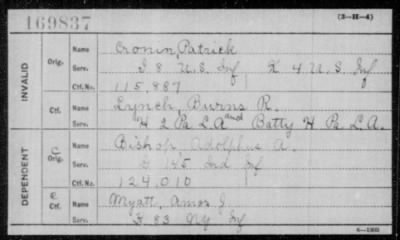 169837
(3—H—4)
INVALID
Orig. Name Cronin, Patrick
Serv. I 8 U.S. Inf K 4 U.S. Inf
Ctf. No. 115,887
Ctf. Name Lynch, Burns R.
Serv. H 2 Pa L.A. and Batty H Pa L.A.
DEPENDENT
C. Orig. Name Bishop, Adolphus A.
Serv. 145 Ind Inf
Ctf. No. 124,010
C. Ctf. Name Myatt, Amos J.
Serv. F 83 NY Inf